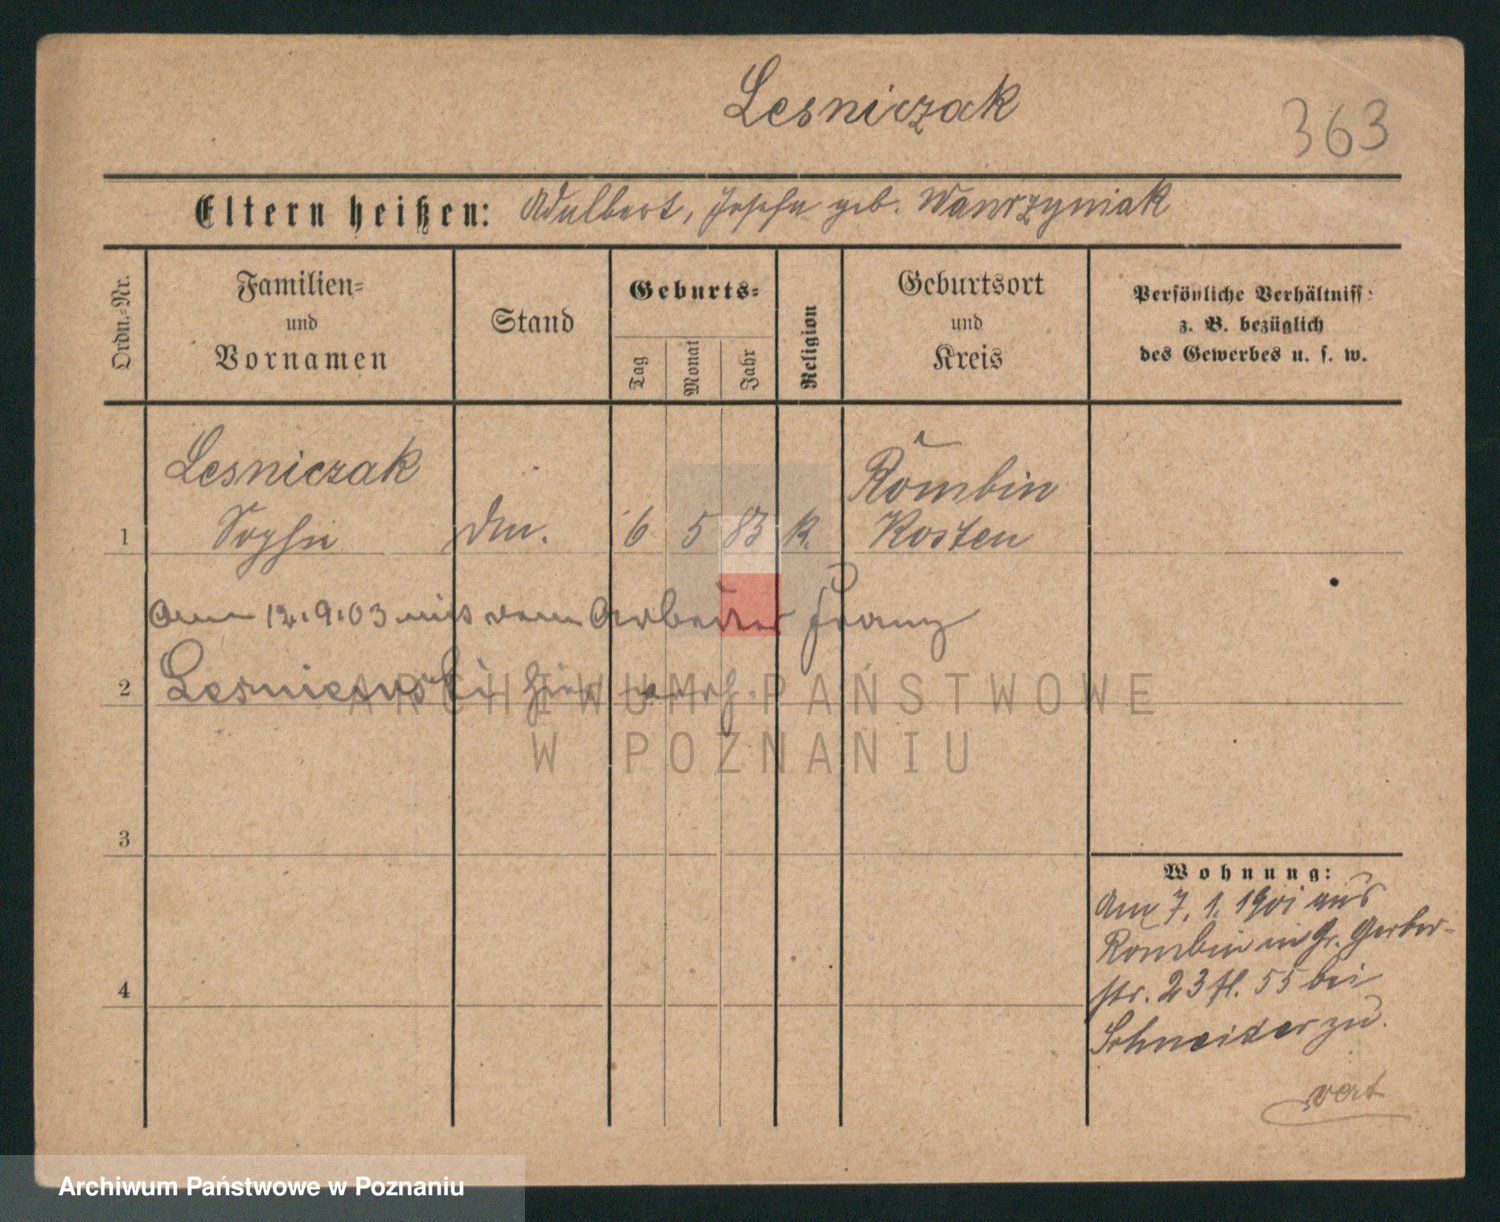 Lesniczak
363
Eltern heißen: Adalbert, Josefa geb. Wawrzyniak
Ordn.-Nr.
Familien-
und
Vornamen
Stand
Geburts-
Tag
Monat
Jahr
Religion
Geburtsort
und
Kreis
Persönliche Verhältniss:
z. B. bezüglich
des Gewerbes u. s. w.
Lesniczak
Rombin
1 Sophie 6 5 83 k. Kosten
Am 12.9.03 mit dem Arbeiter Franz
2 Lesniewski hier verh.
ARCHIWUM PAŃSTWOWE
W POZNANIU
3
Wohnung:
Am 7. 1. 1901 aus
Rombin in Gr. Gerber-
4
str. 23 fl. 55 bei
Schneider zu.
vert
Archiwum Państwowe w Poznaniu